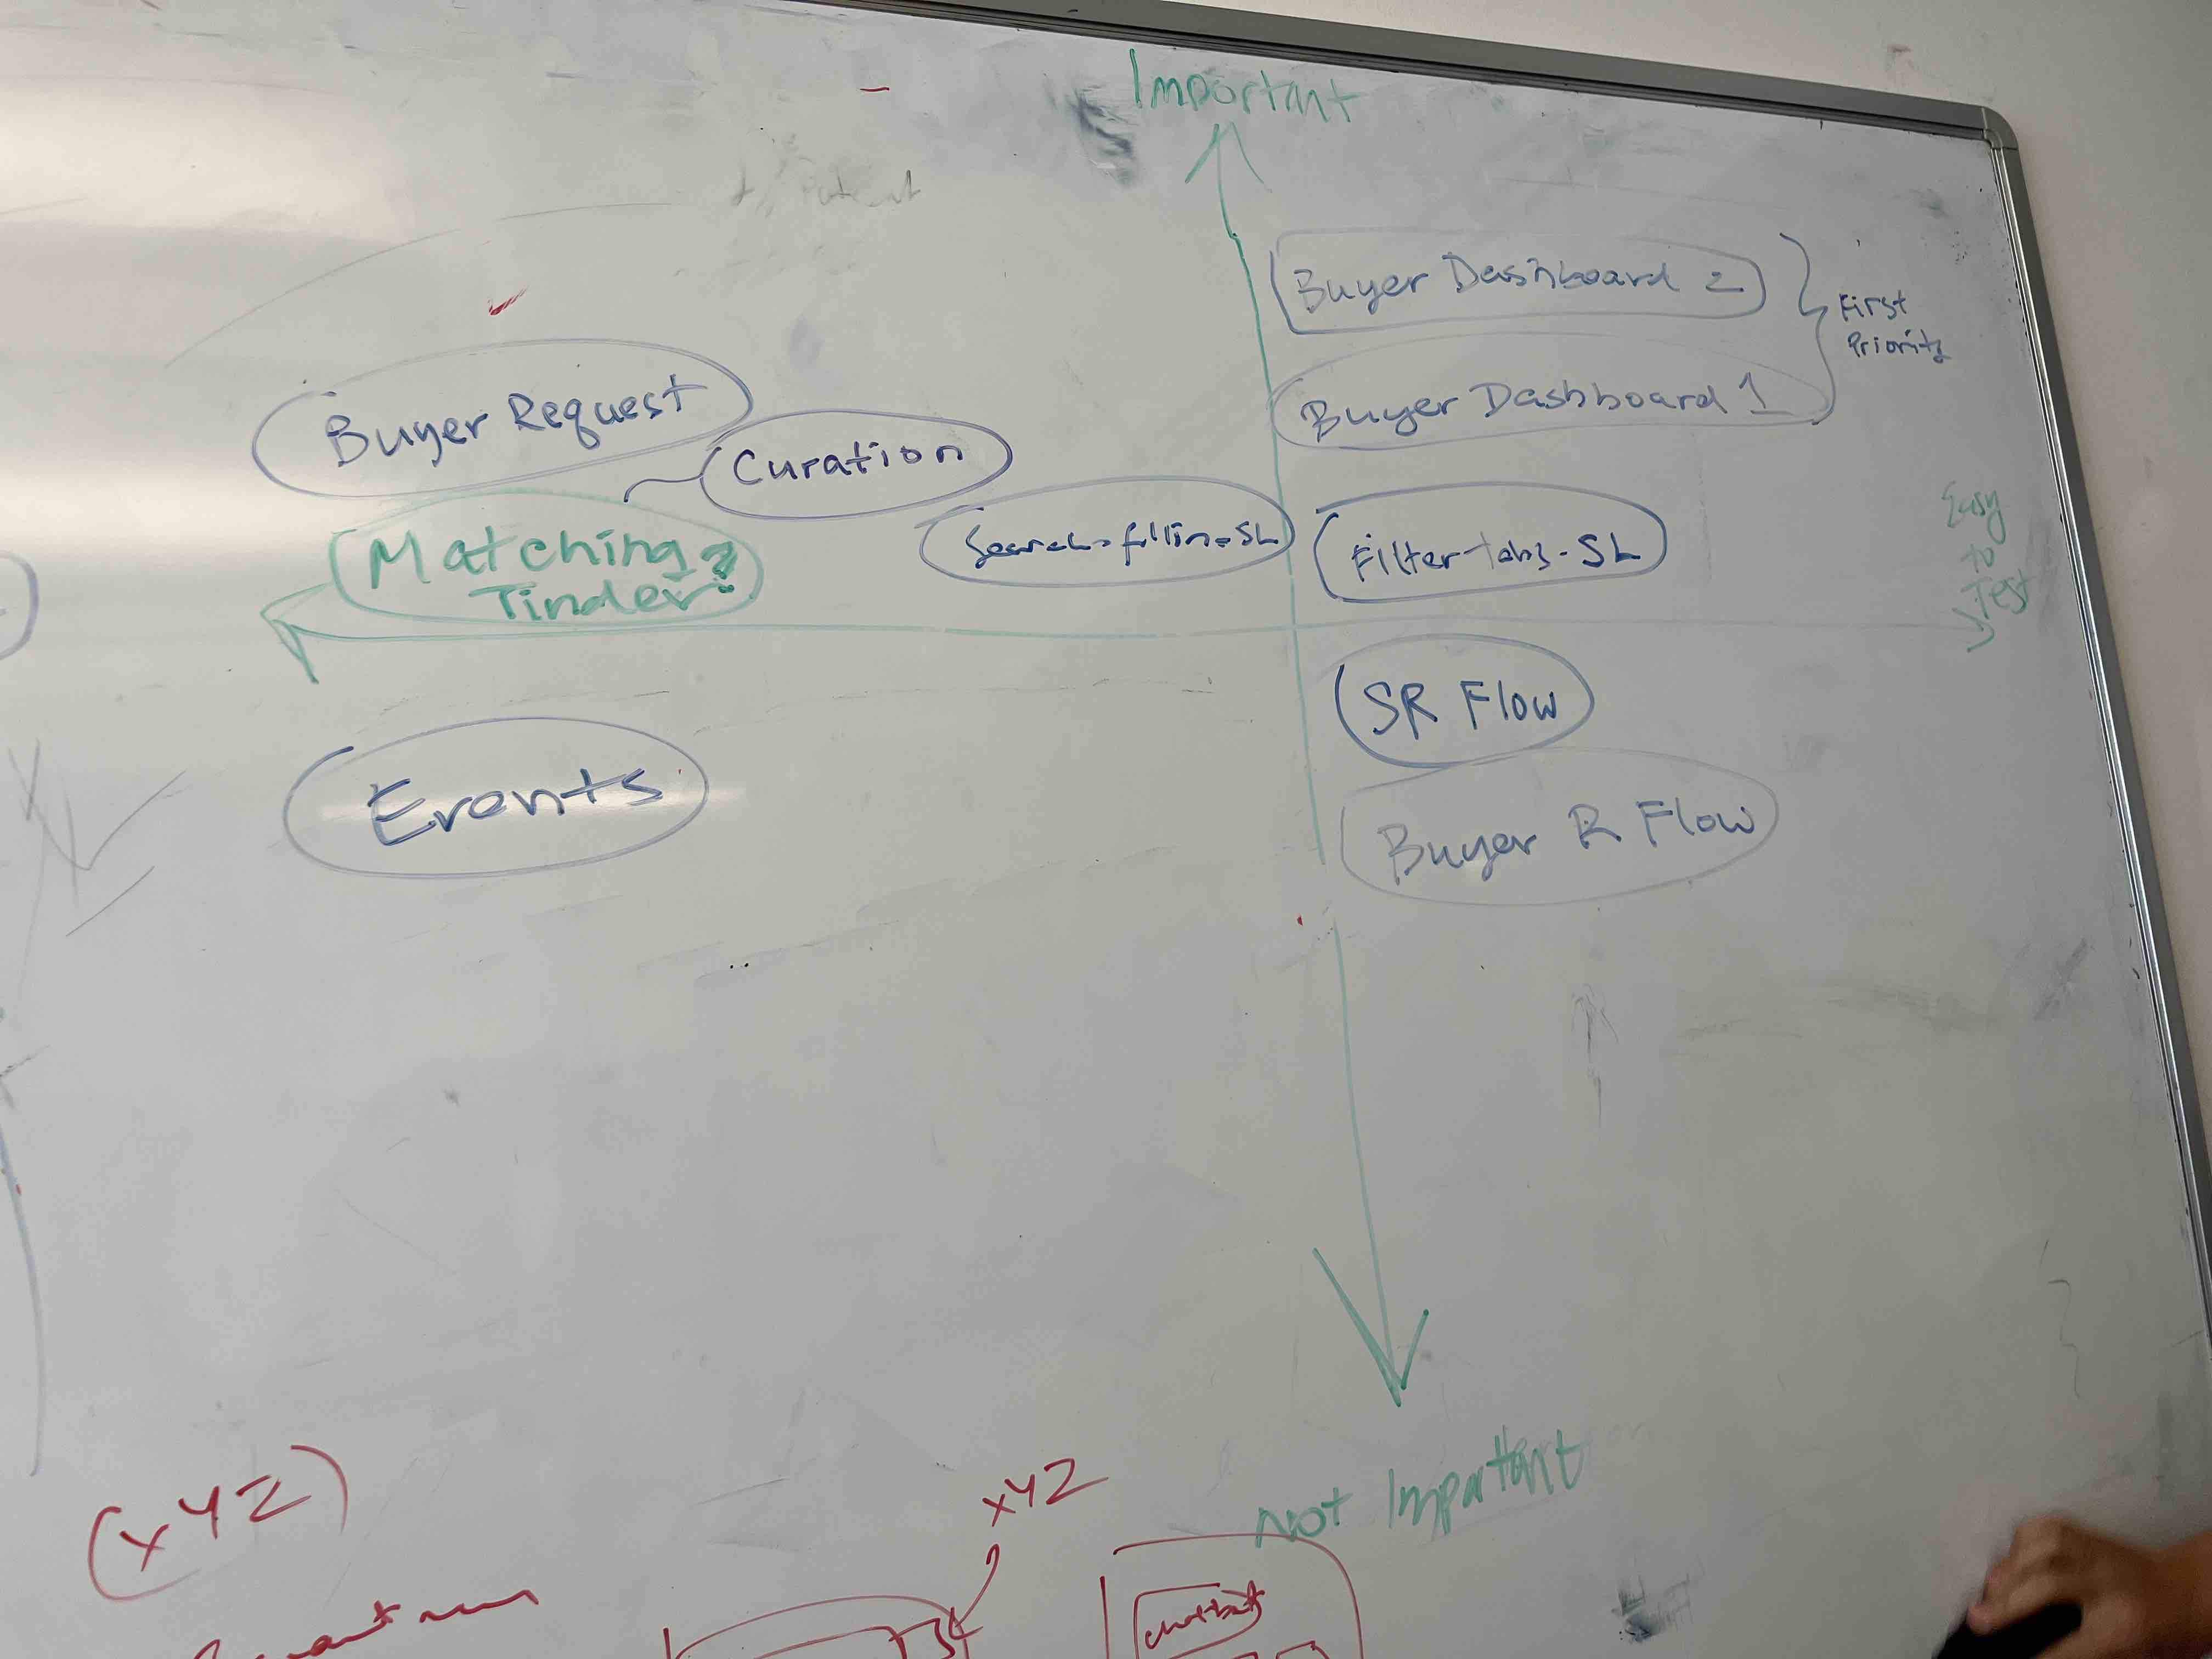 Important
Buyer Dashboard 2
First
Priority
Buyer Request
Buyer Dashboard 1
Curation
Easy
to
Test
Matching ?
Tinder?
SL
Filter tabs - SL
SR Flow
Events
Buyer R Flow
Not Important
(XYZ)
XYZ